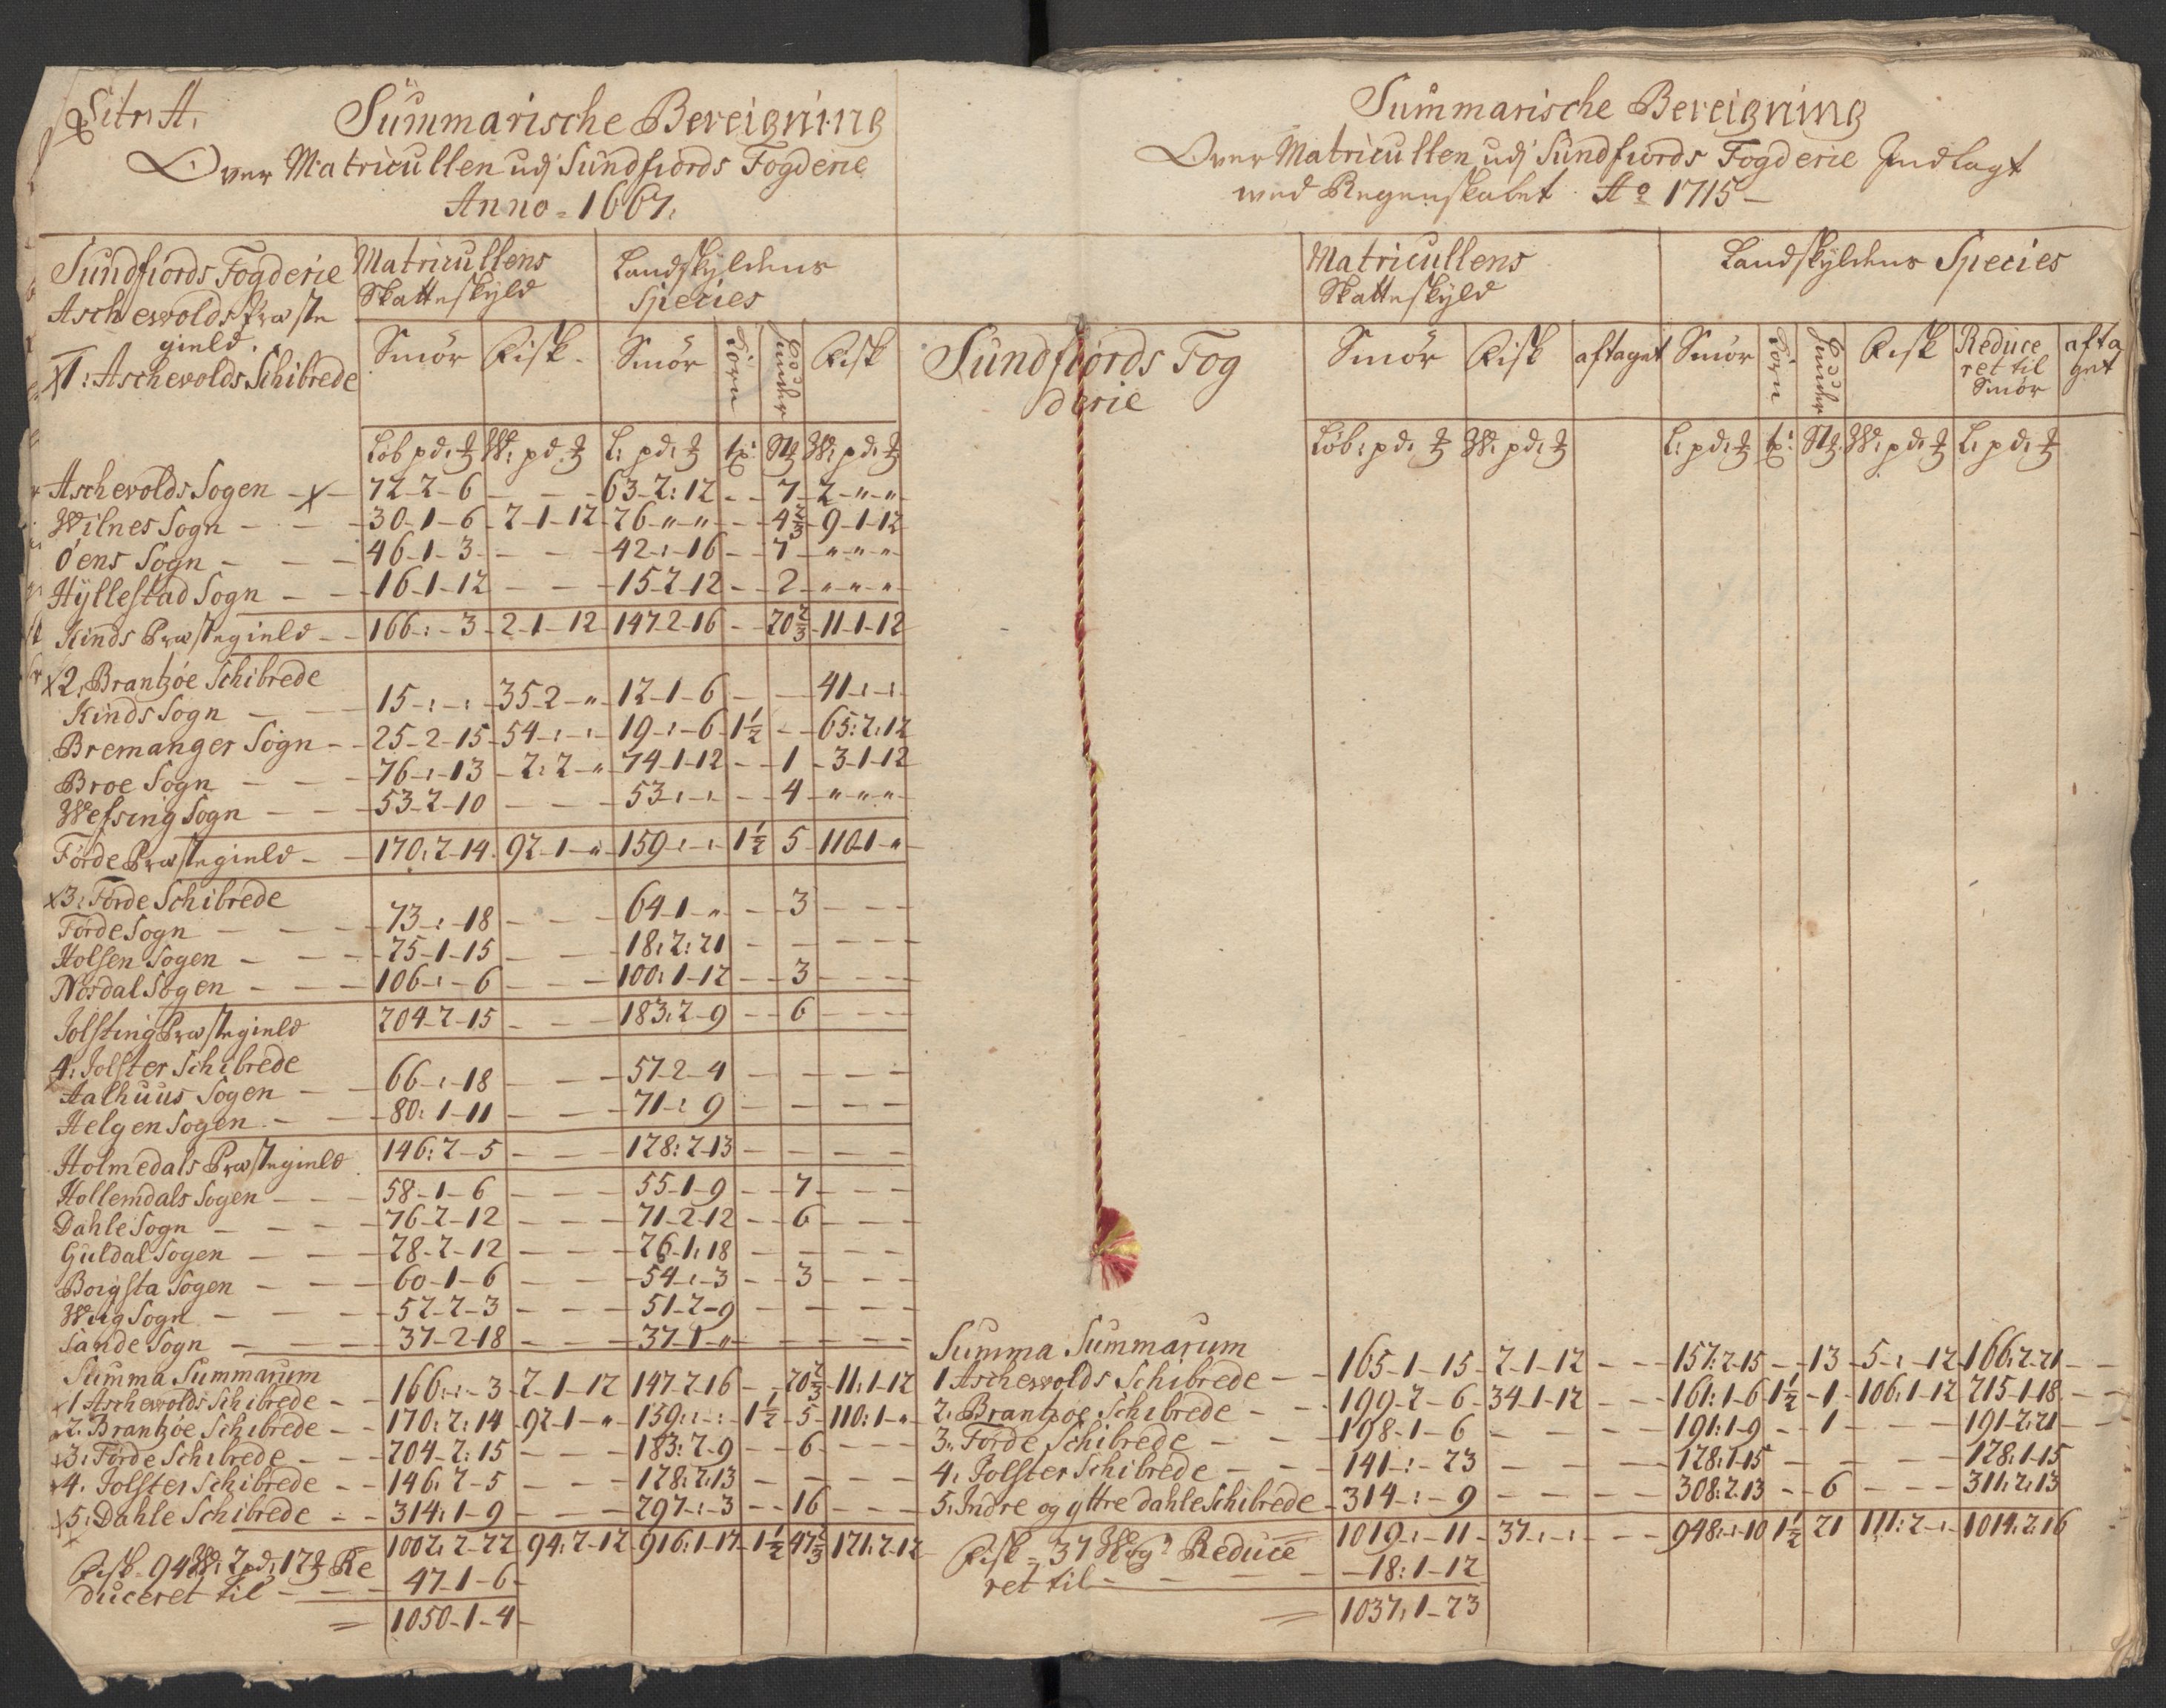 Litr: A.
Summarische Bereigning
Over Matricullen udj Sundfiords Fogderie
Anno = 1667.
Sundfiords Fogderie | Matricullens | Landskyldens
Aschewolds Præste | Skatteskyld | Species
gield.
1: Aschevolds Schibrede | Smör | Fisk | Smör | Korn | Huder | Fisk
Löb pd: ℔ | W: pd: ℔ | L: pd: ℔ | tp: | Stk | W: pd: ℔
Aschevolds Sogen - x - 72-2-6 - - - 63-2:12 - - 7 - 2-"-"
Wilnes Sogn - - - 30-1-6 - 2-1-12 - 26-"-" - - 4 2/3 - 9-1-12
Öens Sogn - - - 46-1-3 - - - 42-:-16 - - 7 - "-"-"
Hyllestad Sogn - - - 16-1-12 - - - 15-2-12 - - 2 - "-"-"
Kinds Præstegield - - 166-:-3 - 2-1-12 - 147-2-16 - - 20 2/3 - 11-1-12
x2, Brantzöe Schibrede
Kinds Sogn - - - 15-:-: - 35-2-" - 12-1-6 - - - 41-:-:
Bremanger Sogn - - 25-2-15 - 54-:-: - 19-:-6 - 1 1/2 - - 65:2:12
Broe Sogn - - - 76-:-13 - 2:2-" - 74-1-12 - - 1 - 3-1-12
Wefsing Sogn - - - 53-2-10 - - - 53-:-: - - 4 - "-"-"
Förde Præstegield - - 170:2-14 - 92-1-" - 159-:-: - 1 1/2 - 5 - 110-1-"
x3: Förde Schibrede
Förde Sogn - - - 73-:-18 - - - 64-1-" - - 3 - - -
Holsen Sogen - - - 25-1-15 - - - 18:2:21 - - - - -
Nordal Sogen - - - 106-:-6 - - - 100:1-12 - - 3 - - -
Jolsting Præstegield 204-2-15 - - - 183:2-9 - - 6 - - -
4: Jolster Schibrede
Aalhuus Sogen - - 66-:-18 - - - 57-2-4 - - - -
Helgen Sogen - - - 80:1-11 - - - 71-:9 - - - -
Holmedals Præstegield 146:2-5 - - - 128:2-13 - - - -
Hollemdals Sogen - - - 58-1-6 - - - 55-1-9 - - 7 - - -
Dahle Sogn - - - 76-2-12 - - - 71-2-12 - - 6 - - -
Guldal Sogen - - - 28-2-12 - - - 26-1:18 - - - -
Borgsta Sogen - - - 60-1-6 - - - 54-:-3 - - 3 - - -
Wiig Sogn - - - 52-2-3 - - - 51-2-9 - - - -
Sande Sogn - - - 37-2-18 - - - 37-1-" - - - -
Summa Summarum
1 Aschevolds Schibrede - - 166-:-3 - 2-1-12 147-2-16 - - 20 2/3 - 11:1-12
2: Brantzöe Schibrede - - 170:2:14 - 92-1-" - 159:-: - 1 1/2 - 5 - 110:1-"
x3: Förde Schibrede - - - 204-2:15 - - - 183:2-9 - - 6 - - - -
x4: Jolster Schibrede - - 146:2-5 - - - 128:2:13 - - - - -
x5: Dahle Schibrede - - 314:1-9 - - - 297-:-3 - - 16 - - -
1002:2-22 - 94:2-12 - 916:1-17 - 1 1/2 47 2/3 - 121:2-12
Fisk - 94 W: 2 pd: 12 ℔ Re
duceret til - - - 47-1-6
= 1050-1-4
Summarische Bereigning
Over Matricullen udj Sundfiords Fogderie Indlagt
med Regenskabet A° 1715
Matricullens | Landskyldens Species
Skatteskyld
Sundfiords Fog | Smör | Fisk | aftaget | Smör | Korn | Huder | Fisk | Reduce | afta
derie | ret til | get
Smör
Löb: pd: ℔ | W: pd: ℔ | L: pd: ℔ | tp: | Stk: | W: pd: ℔ | L: pd: ℔
Summa Summarum
1 Aschewolds Schibrede - - 165-1-15 - 2-1-12 - - 157:2-15 - - 13 - 5-:-12 - 166:2-21 - -
2: Brantzöe Schibrede - - 199-2-6 - 34-1-12 - - 161:1-6 1 1/2 - 1 - 106:1-12 215-1-18 - -
3: Förde Schibrede - - 198-1-6 - - - 191:1-9 - - 1 - - - 191-2:21 - -
4: Jolster Schibrede - - 141-:-23 - - - 128:1-15 - - - - 128:1-15
5: Indre og yttre dahle Schibrede - 314-:-9 - - - 308:2:13 - - 6 - - - 311:2:13
Fisk - 37 Wog: Reduce 1019-:-11 - 37-:-: - - 948:-:-10 1 1/2 21 111:2-: - 1014:2:16
ret til - - - - 18:1-12
= 1037:1-23